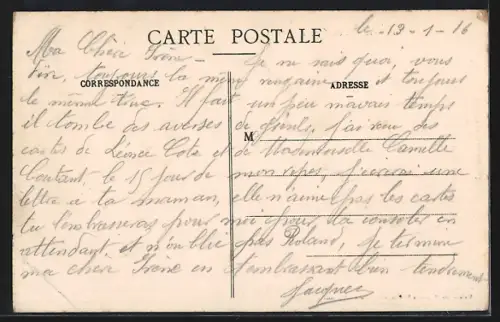 CARTE POSTALE
le -13-1-16
Ma Chère Irène - Je ne sais quoi, vous
dire, toujours la même rengaine et toujours
CORRESPONDANCE
ADRESSE
le même truc. Il fait un peu mauvais temps
il tombe des averses de j'ai reçu des
M
cartes de Léonce Cote et de Mademoiselle Camille
Coutant, le 15 jour de mon repos, une
lettre à ta maman, elle n'aime pas les cartes
tu l'embrasseras pour moi pour la consoler en
attendant, et n'oublie pas Roland, Je termine
ma chère Irène en t'embrassant bien tendrement
Jacques